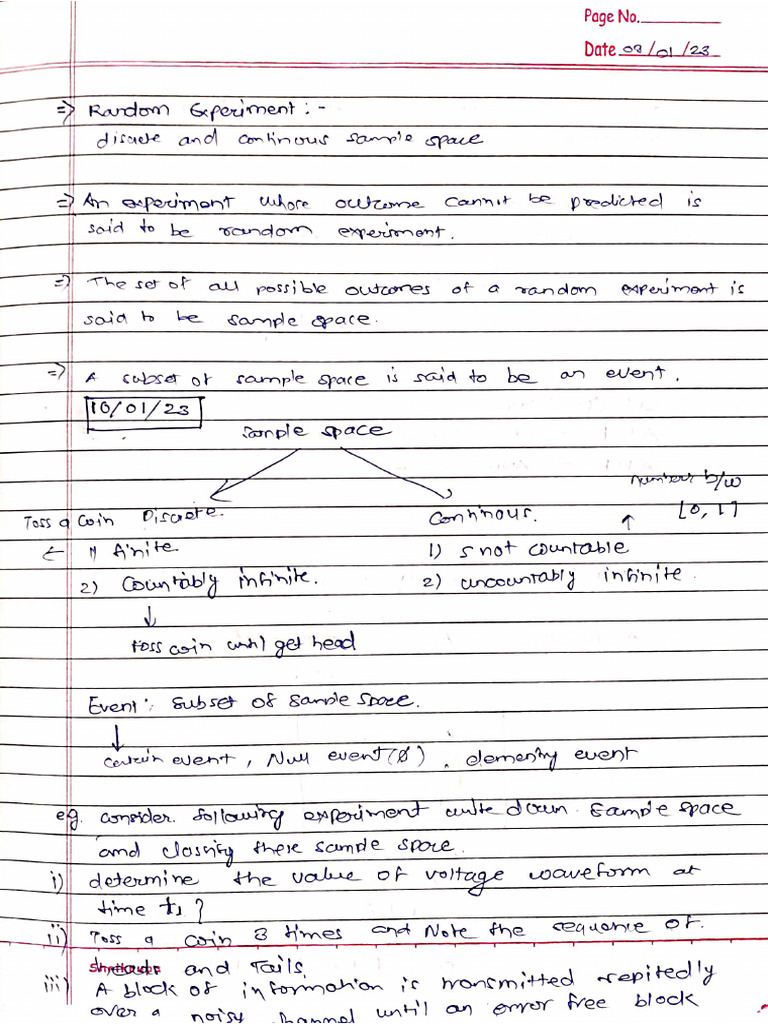 Page No.
Date 03/01/23
=> Random Experiment :-
discrete and continous sample space
=> An experiment whose outcome cannot be predicted is
said to be random experiment.
=> The set of all possible outcomes of a random experiment is
said to be sample space.
=> A subset of sample space is said to be an event.
10/01/23
Sample space
numbers b/w
Toss a coin Discrete. Continous. ↑ [0, 1]
← 1) finite 1) s not countable
2) Countably infinite. 2) uncountably infinite
↓
toss coin until get head
Event : Subset of sample space.
↓
certain event, Null event (Ø), elementry event
eg. consider following experiment write down sample space
and classify these sample space.
i) determine the value of voltage waveform at
time t₁ ?
ii) Toss a coin 3 times and Note the sequence of
and Tails.
iii) A block of information is transmitted repitedly
over a noisy channel until an error free block